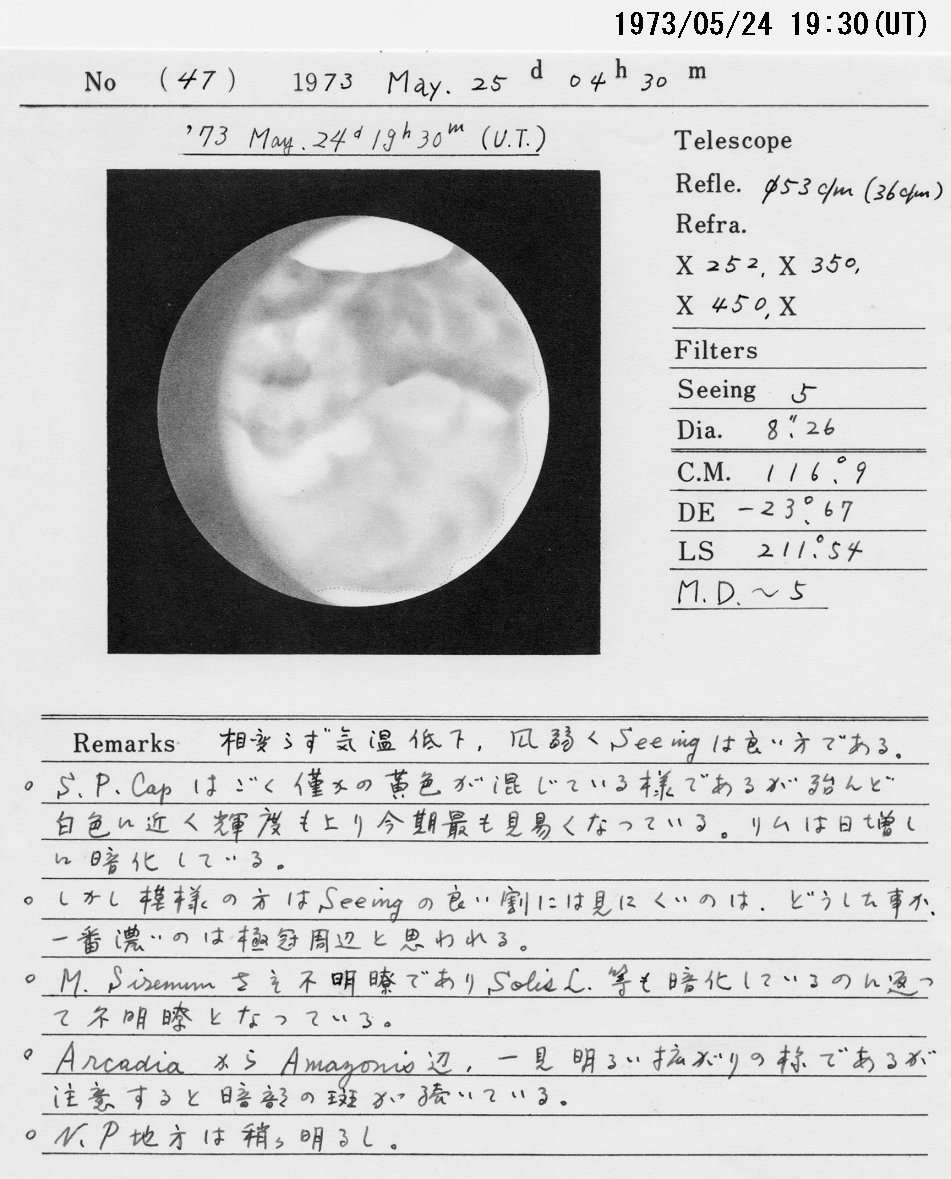 1973/05/24 19:30(UT)
No (47) 1973 May. 25 d 04 h 30 m
'73 May. 24d 19h 30m (U.T.)
Telescope
Refle. φ53c/m (36c/m)
Refra.
X 252, X 350,
X 450, X
Filters
Seeing 5
Dia. 8".26
C.M. 116°.9
DE -23°.67
LS 211°.54
M.D. ~5
Remarks 相変らず気温低下, 風弱くSeeingは良い方である。
○ S.P.Capはごく僅かの黄色が混じている様であるが殆んど
白色に近く輝度も上り今期最も見易くなっている。リムは日増し
に暗化している。
○ しかし模様の方はSeeingの良い割には見にくいのは、どうした事か、
一番濃いのは極冠周辺と思われる。
○ M. Sirenum さえ不明瞭でありSolis L.等も暗化しているのに返っ
て不明瞭となっている。
○ Arcadia から Amazonis辺, 一見明るい拡がりの様であるが
注意すると暗部の斑が続いている。
○ N.P地方は稍々明るし。